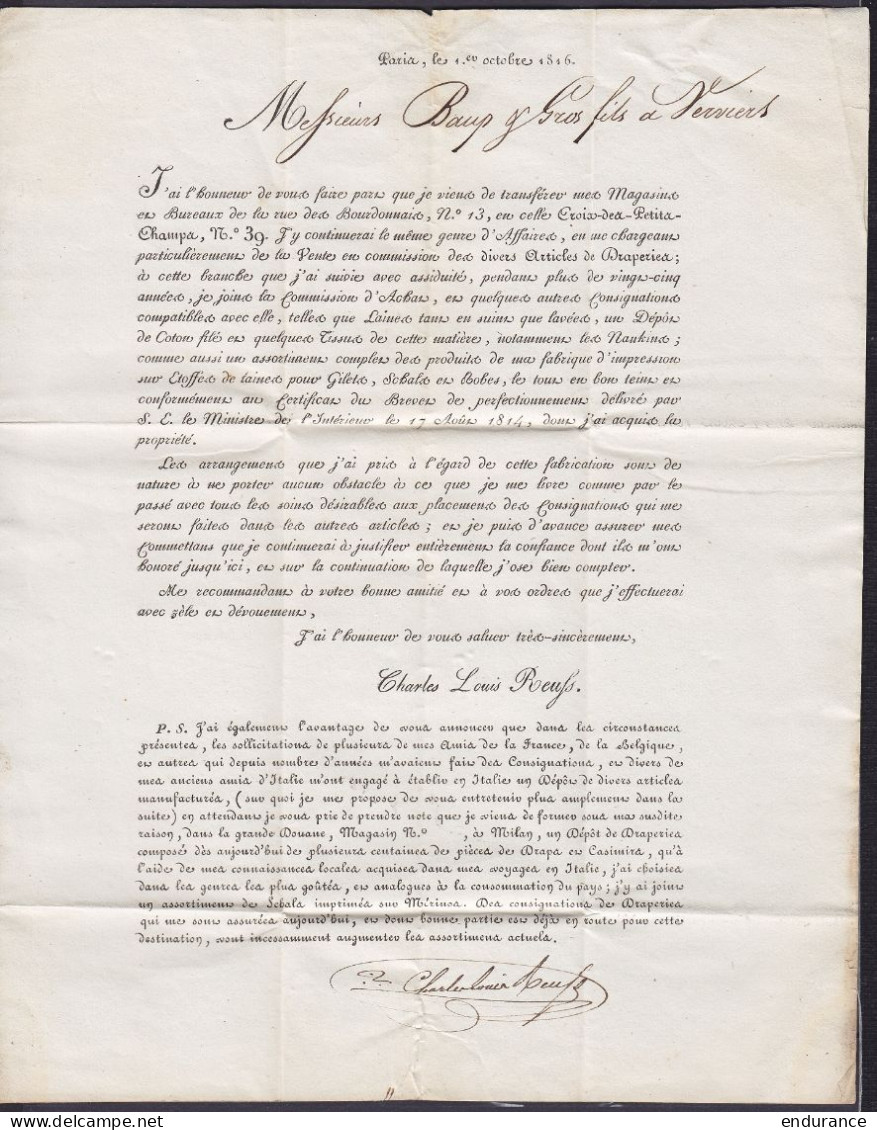 Paris, le 1.er octobre 1816.
Messieurs Baup & Gros fils a Verviers
J'ai l'honneur de vous faire part que je viens de transférer mes Magasins
et Bureaux de la rue des Bourdonnais, N.º 13, en celle Croix-des-Petits-
Champs, N.º 39. J'y continuerai le même genre d'Affaires, en me chargeant
particulièrement de la Vente en commission des divers Articles de Draperies;
à cette branche que j'ai suivie avec assiduité, pendant plus de vingt-cinq
années, je joins la Commission d'Achat, et quelques autres Consignations
compatibles avec elle, telles que Laines tant en suint que lavées, un Dépôt
de Coton filé et quelques Tissus de cette matière, notamment les Nankins;
comme aussi un assortiment complet des produits de ma fabrique d'impression
sur Etoffes de laines pour Gilets, Schals et Robes, le tout en bon teint et
conformément au Certificat du Brevet de perfectionnement délivré par
S. E. le Ministre de l'Intérieur le 17 Août 1814, dont j'ai acquis la
propriété.
Les arrangemens que j'ai pris à l'égard de cette fabrication sont de
nature à ne porter aucun obstacle à ce que je me livre comme par le
passé avec tous les soins désirables aux placemens des Consignations qui me
seront faites dans les autres articles; et je puis d'avance assurer mes
Commettans que je continuerai à justifier entièrement la confiance dont ils m'ont
honoré jusqu'ici, et sur la continuation de laquelle j'ose bien compter.
Me recommandant à votre bonne amitié et à vos ordres que j'effectuerai
avec zèle et dévouement,
J'ai l'honneur de vous saluer très-sincèrement,
Charles Louis Reuss.
P. S. J'ai également l'avantage de vous annoncer que dans les circonstances
présentes, les sollicitations de plusieurs de mes Amis de la France, de la Belgique,
et autres qui depuis nombre d'années m'avaient fait des Consignations, et divers de
mes anciens amis d'Italie m'ont engagé à établir en Italie un Dépôt de divers articles
manufacturés, (sur quoi je me propose de vous entretenir plus amplement dans la
suite) en attendant je vous prie de prendre note que je viens de former sous ma susdite
raison, dans la grande Douane, Magasin N.º , à Milan, un Dépôt de Draperies
composé dès aujourd'hui de plusieurs centaines de pièces de Draps et Casimirs, qu'à
l'aide de mes connaissances locales acquises dans mes voyages en Italie, j'ai choisies
dans les genres les plus goûtés, et analogues à la consommation du pays; j'y ai joint
un assortiment de Schals imprimés sur Mérinos. Des consignations de Draperies
qui me sont assurées aujourd'hui, et dont bonne partie est déjà en route pour cette
destination, vont incessamment augmenter les assortimens actuels.
Charles Louis Reuss
endurance